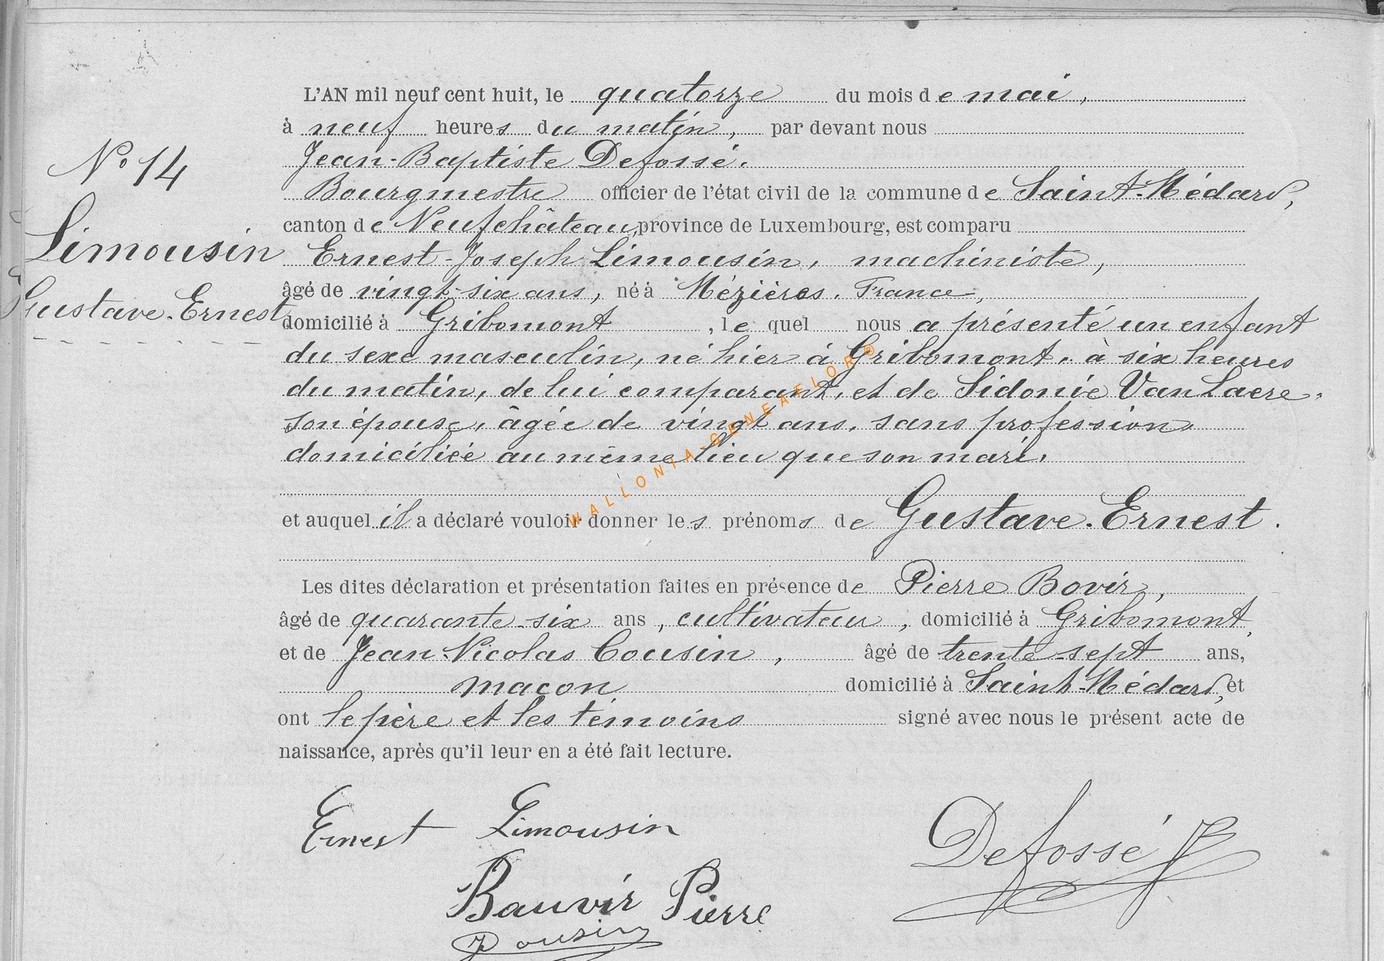 L'AN mil neuf cent huit, le quatorze du mois de mai,
à neuf heures du matin, par devant nous
Jean-Baptiste Defossé.
Bourgmestre officier de l'état civil de la commune de Saint-Médard,
canton de Neufchâteau, province de Luxembourg, est comparu
Ernest-Joseph Limousin, machiniste,
âgé de vingt-six ans, né à Mézières. France,
domicilié à Gribomont, le quel nous a présenté un enfant
du sexe masculin, né hier à Gribomont. à six heures
du matin, de lui comparant, et de Sidonie Van Laere,
son épouse, âgée de vingt ans, sans profession,
domiciliée au même lieu que son mari.
et auquel il a déclaré vouloir donner les prénoms de Gustave-Ernest.
Les dites déclaration et présentation faites en présence de Pierre Bovir,
âgé de quarante-six ans, cultivateur, domicilié à Gribomont,
et de Jean-Nicolas Cousin, âgé de trente-sept ans,
maçon domicilié à Saint-Médard, et
ont le père et les témoins signé avec nous le présent acte de
naissance, après qu'il leur en a été fait lecture.
No 14
Limousin
Gustave-Ernest
WALLONIA-GENEAFLORD
Ernest Limousin
Defossé J
Bauvir Pierre
Cousin